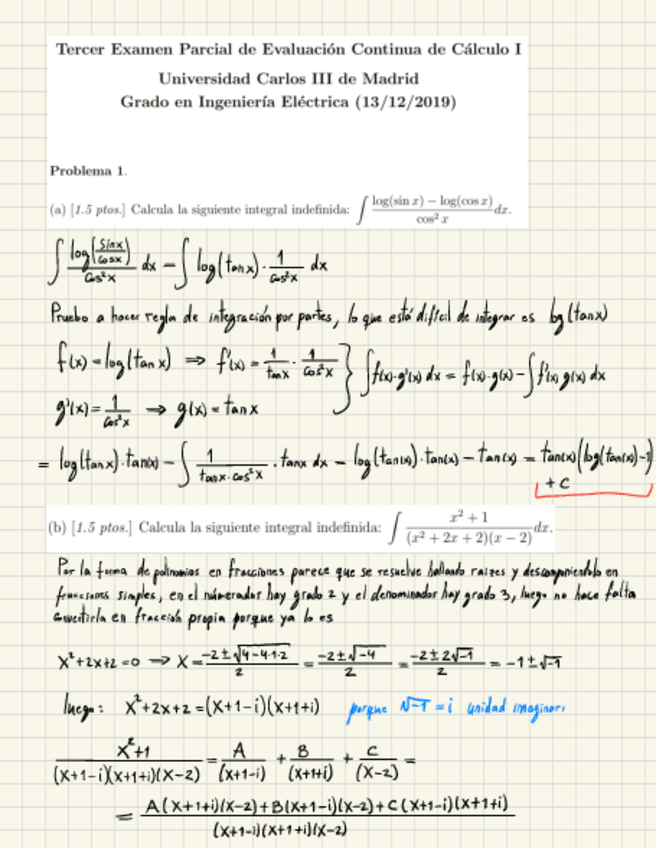 Tercer Examen Parcial de Evaluación Continua de Cálculo I
Universidad Carlos III de Madrid
Grado en Ingeniería Eléctrica (13/12/2019)
Problema 1.
(a) [1.5 ptos.] Calcula la siguiente integral indefinida: ∫ (log(sin x) − log(cos x))/(cos² x) dx.
∫ log(sinx/cosx)/cos²x dx = ∫ log(tanx) · 1/cos²x dx
Pruebo a hacer regla de integración por partes, lo que está difícil de integrar es log(tanx)
f(x) = log(tanx) ⇒ f'(x) = 1/tanx · 1/cos²x } ∫f(x)·g'(x) dx = f(x)·g(x) − ∫f'(x) g(x) dx
g'(x) = 1/cos²x ⇒ g(x) = tanx
= log(tanx)·tan(x) − ∫ 1/(tanx·cos²x) · tanx dx = log(tan(x))·tan(x) − tan(x) = tan(x)(log(tan(x))−1)
+ C
(b) [1.5 ptos.] Calcula la siguiente integral indefinida: ∫ (x² + 1)/((x² + 2x + 2)(x − 2)) dx.
Por la forma de polinomios en fracciones parece que se resuelve hallando raizes y descomponiendolo en
fracciones simples, en el númerador hay grado 2 y el denominador hay grado 3, luego no hace falta
convertirla en fracción propia porque ya lo es
x²+2x+2=0 ⇒ x = (−2±√(4−4·1·2))/2 = (−2±√−4)/2 = (−2±2√−1)/2 = −1±√−1
luego: x²+2x+2 = (x+1−i)(x+1+i) porque √−1 = i unidad imaginari
(x²+1)/((x+1−i)(x+1+i)(x−2)) = A/(x+1−i) + B/(x+1+i) + C/(x−2) =
= (A(x+1+i)(x−2)+B(x+1−i)(x−2)+C(x+1−i)(x+1+i))/((x+1−i)(x+1+i)(x−2))